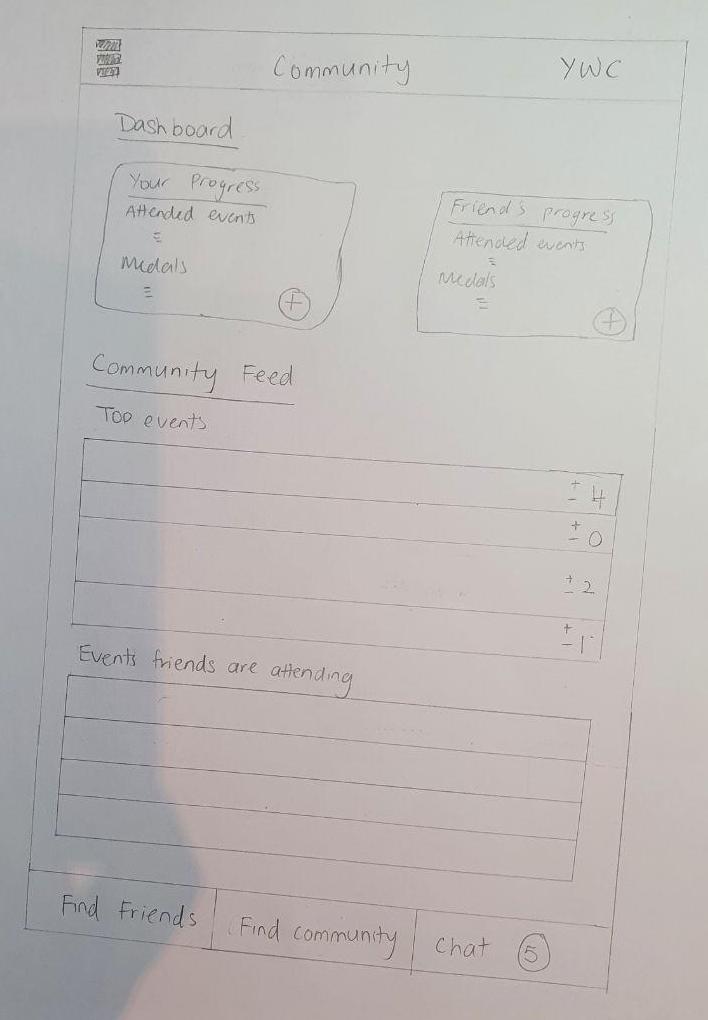 Community YWC
Dashboard
Your Progress
Attended events
Medals
+
Friend's progress
Attended events
Medals
+
Community Feed
Top events
± 4
± 0
± 2
± 1
Events friends are attending
Find Friends
Find community
Chat 5